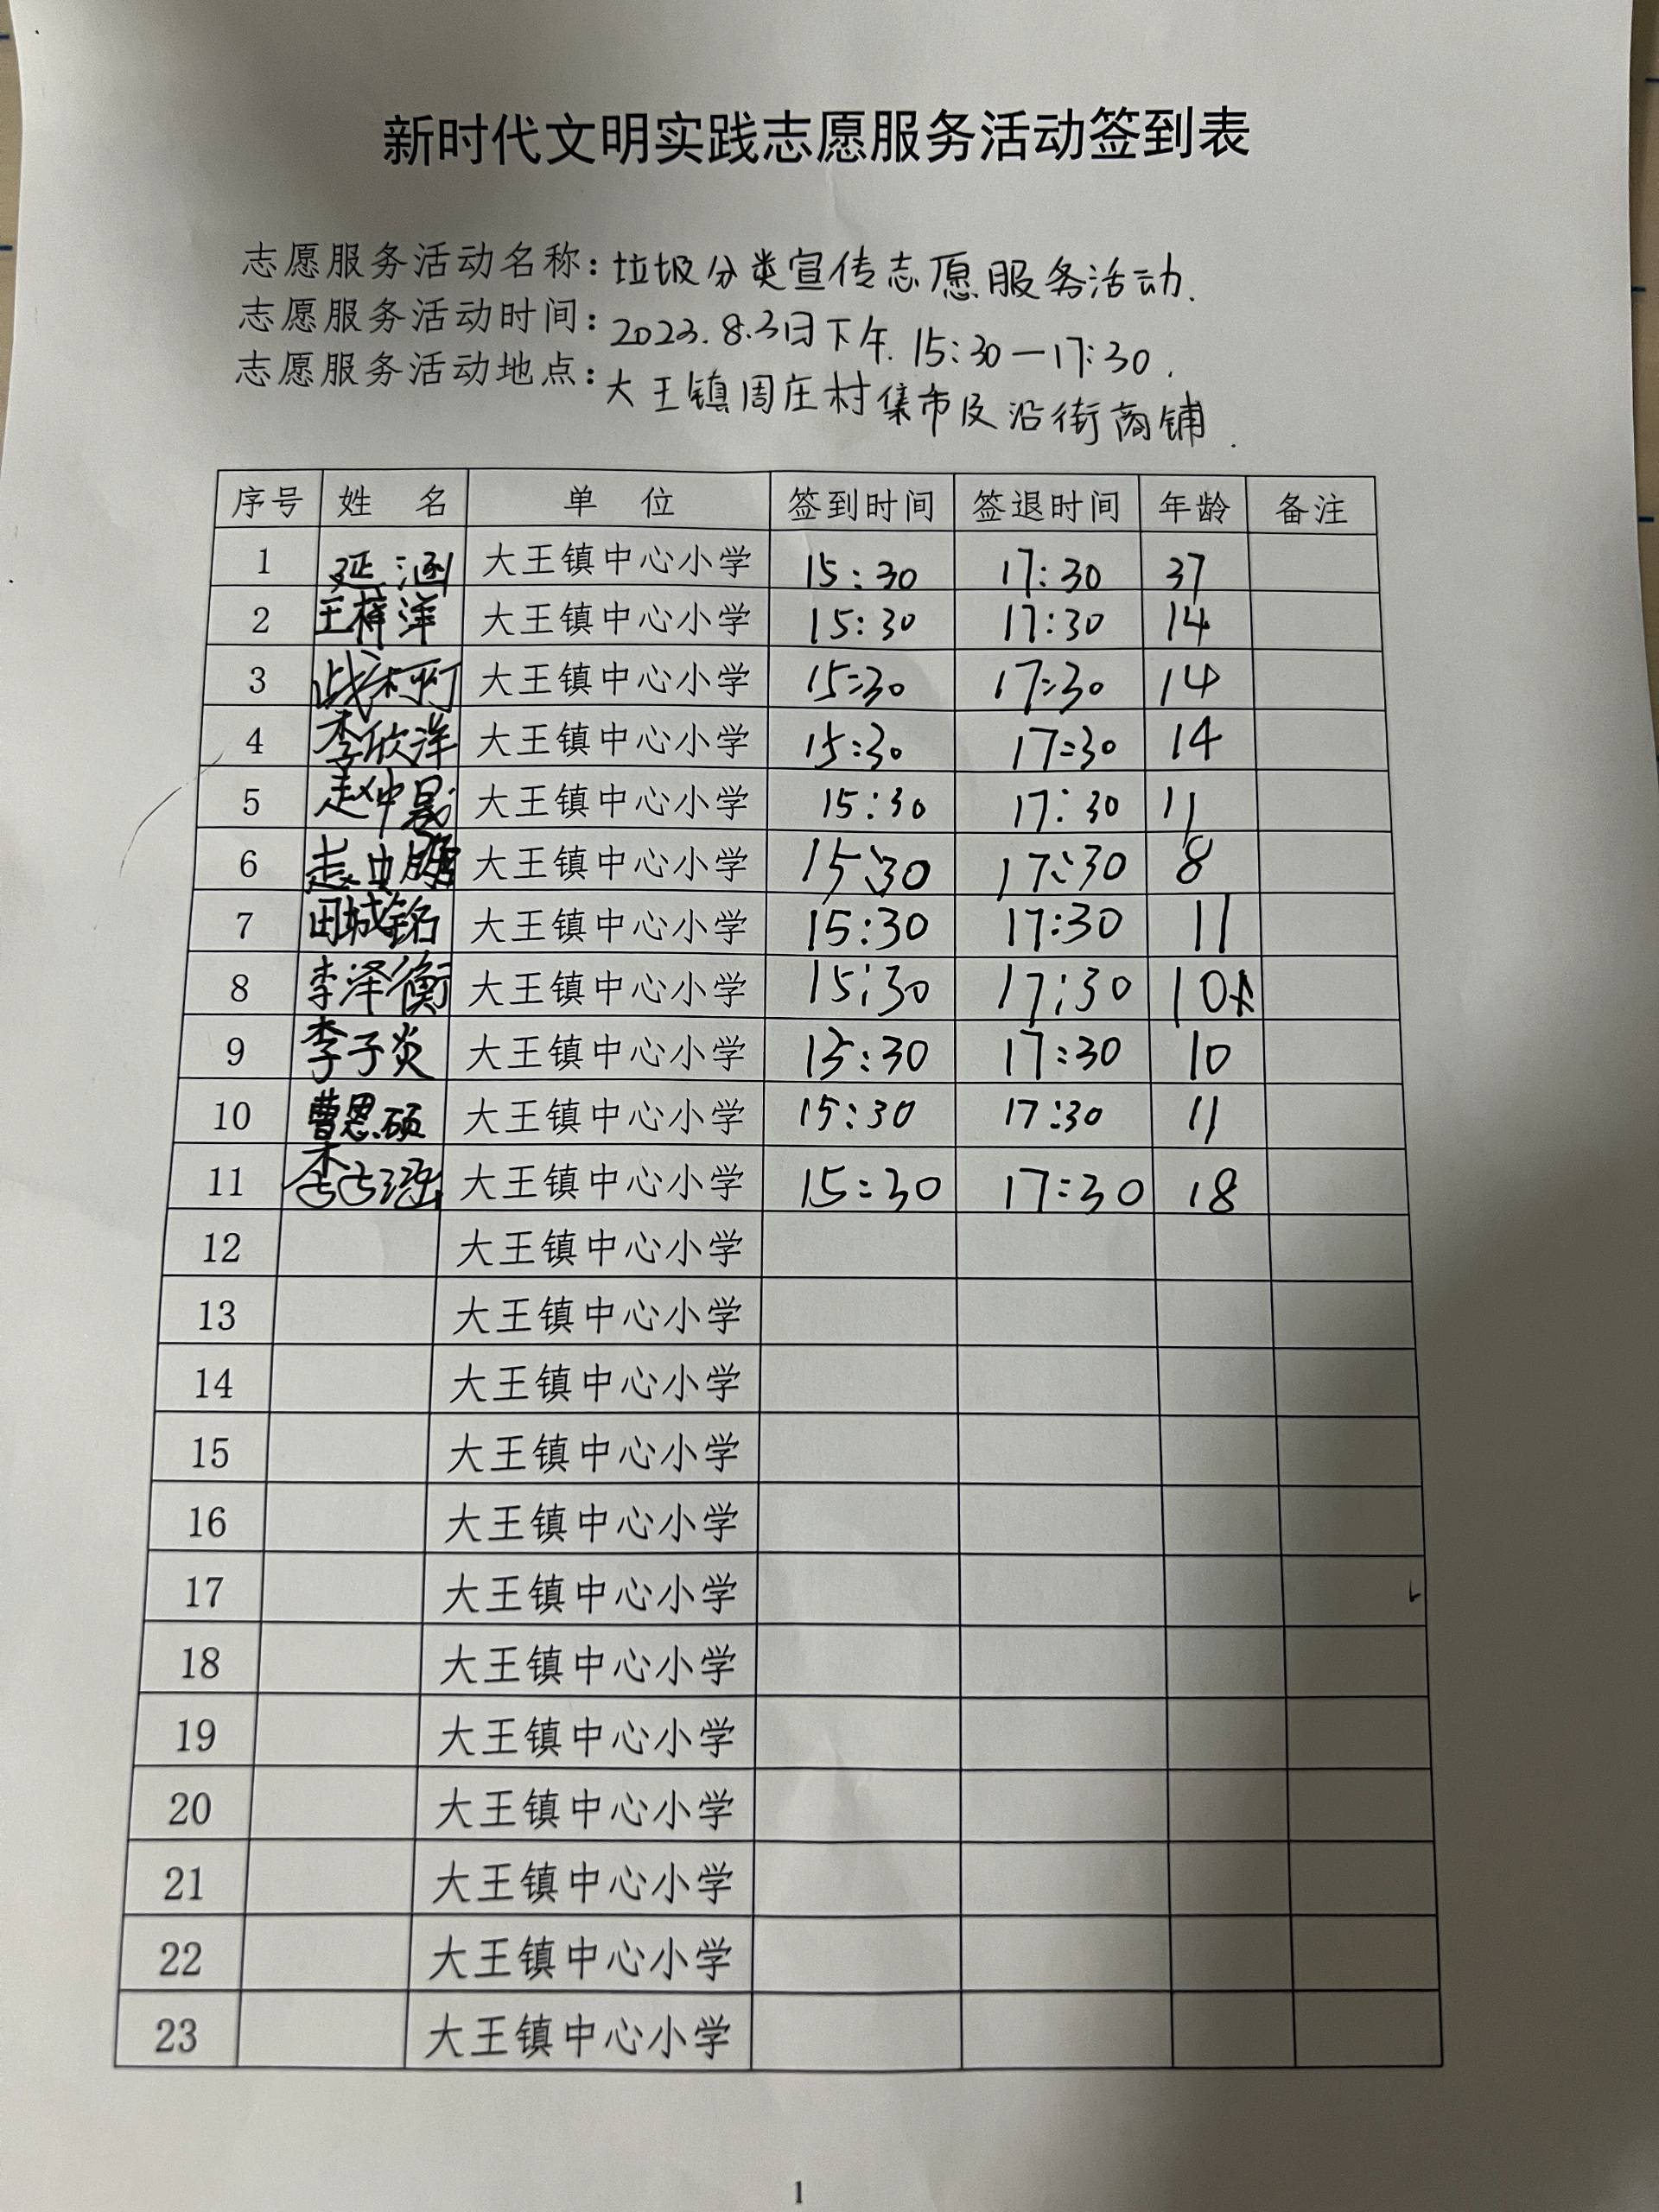 新时代文明实践志愿服务活动签到表
志愿服务活动名称：垃圾分类宣传志愿服务活动.
志愿服务活动时间：2023.8.3日下午.15:30—17:30.
志愿服务活动地点：大王镇周庄村集市及沿街商铺.
序号 姓 名 单 位 签到时间 签退时间 年龄 备注
1 延涵 大王镇中心小学 15:30 17:30 37
2 王梓洋 大王镇中心小学 15:30 17:30 14
3 大王镇中心小学 15:30 17:30 14
4 李欣洋 大王镇中心小学 15:30 17:30 14
5 赵中晟 大王镇中心小学 15:30 17:30 11
6 大王镇中心小学 15:30 17:30 8
7 田城铭 大王镇中心小学 15:30 17:30 11
8 李泽衡 大王镇中心小学 15:30 17:30 10
9 李子炎 大王镇中心小学 15:30 17:30 10
10 曹恩硕 大王镇中心小学 15:30 17:30 11
11 大王镇中心小学 15:30 17:30 18
12 大王镇中心小学
13 大王镇中心小学
14 大王镇中心小学
15 大王镇中心小学
16 大王镇中心小学
17 大王镇中心小学
18 大王镇中心小学
19 大王镇中心小学
20 大王镇中心小学
21 大王镇中心小学
22 大王镇中心小学
23 大王镇中心小学
1